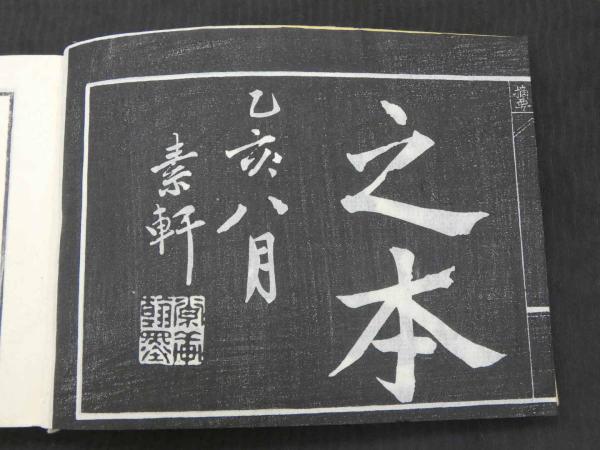 摘要
之本
乙亥八月
素軒